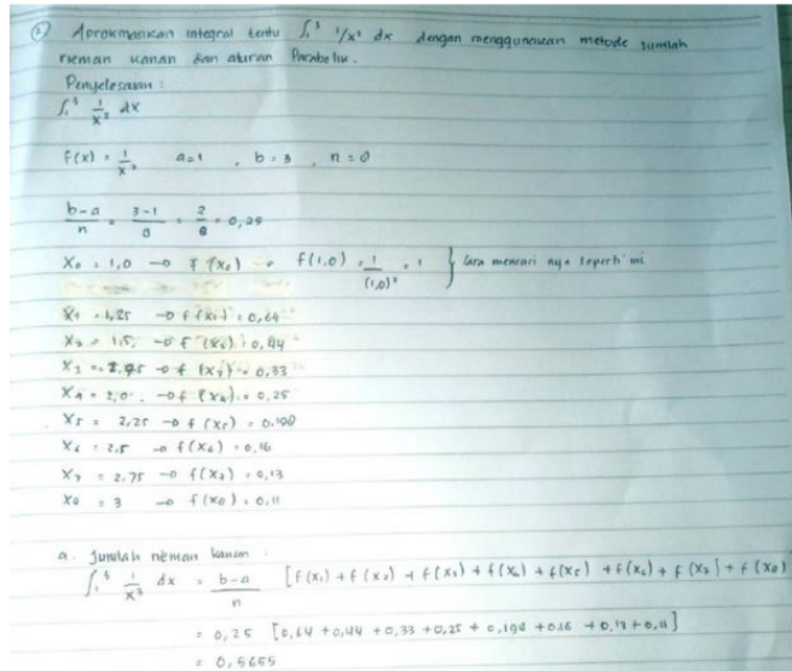 ② Aprokmasikan integral tentu ∫₁³ 1/x² dx dengan menggunakan metode jumlah
rieman kanan dan aturan Parabolik.
Penyelesaian :
∫₁³ 1/x² dx
f(x) = 1/x² a=1 , b=3 , n=8
b-a/n = 3-1/8 = 2/8 = 0,25
X₀ = 1,0 → f(x₀) = f(1,0) = 1/(1,0)² = 1 } Cara mencari nya seperti ini
X₁ = 1,25 → f(x₁) = 0,64
X₂ = 1,5 → f(x₂) = 0,44
X₃ = 1,75 → f(x₃) = 0,33
X₄ = 2,0 → f(x₄) = 0,25
X₅ = 2,25 → f(x₅) = 0,198
X₆ = 2,5 → f(x₆) = 0,16
X₇ = 2,75 → f(x₇) = 0,13
X₈ = 3 → f(x₈) = 0,11
a. Jumlah rieman kanan
∫₁³ 1/x² dx = b-a/n [f(x₁) + f(x₂) + f(x₃) + f(x₄) + f(x₅) + f(x₆) + f(x₇) + f(x₈)
= 0,25 [0,64 + 0,44 + 0,33 + 0,25 + 0,198 + 0,16 + 0,13 + 0,11]
= 0,5655